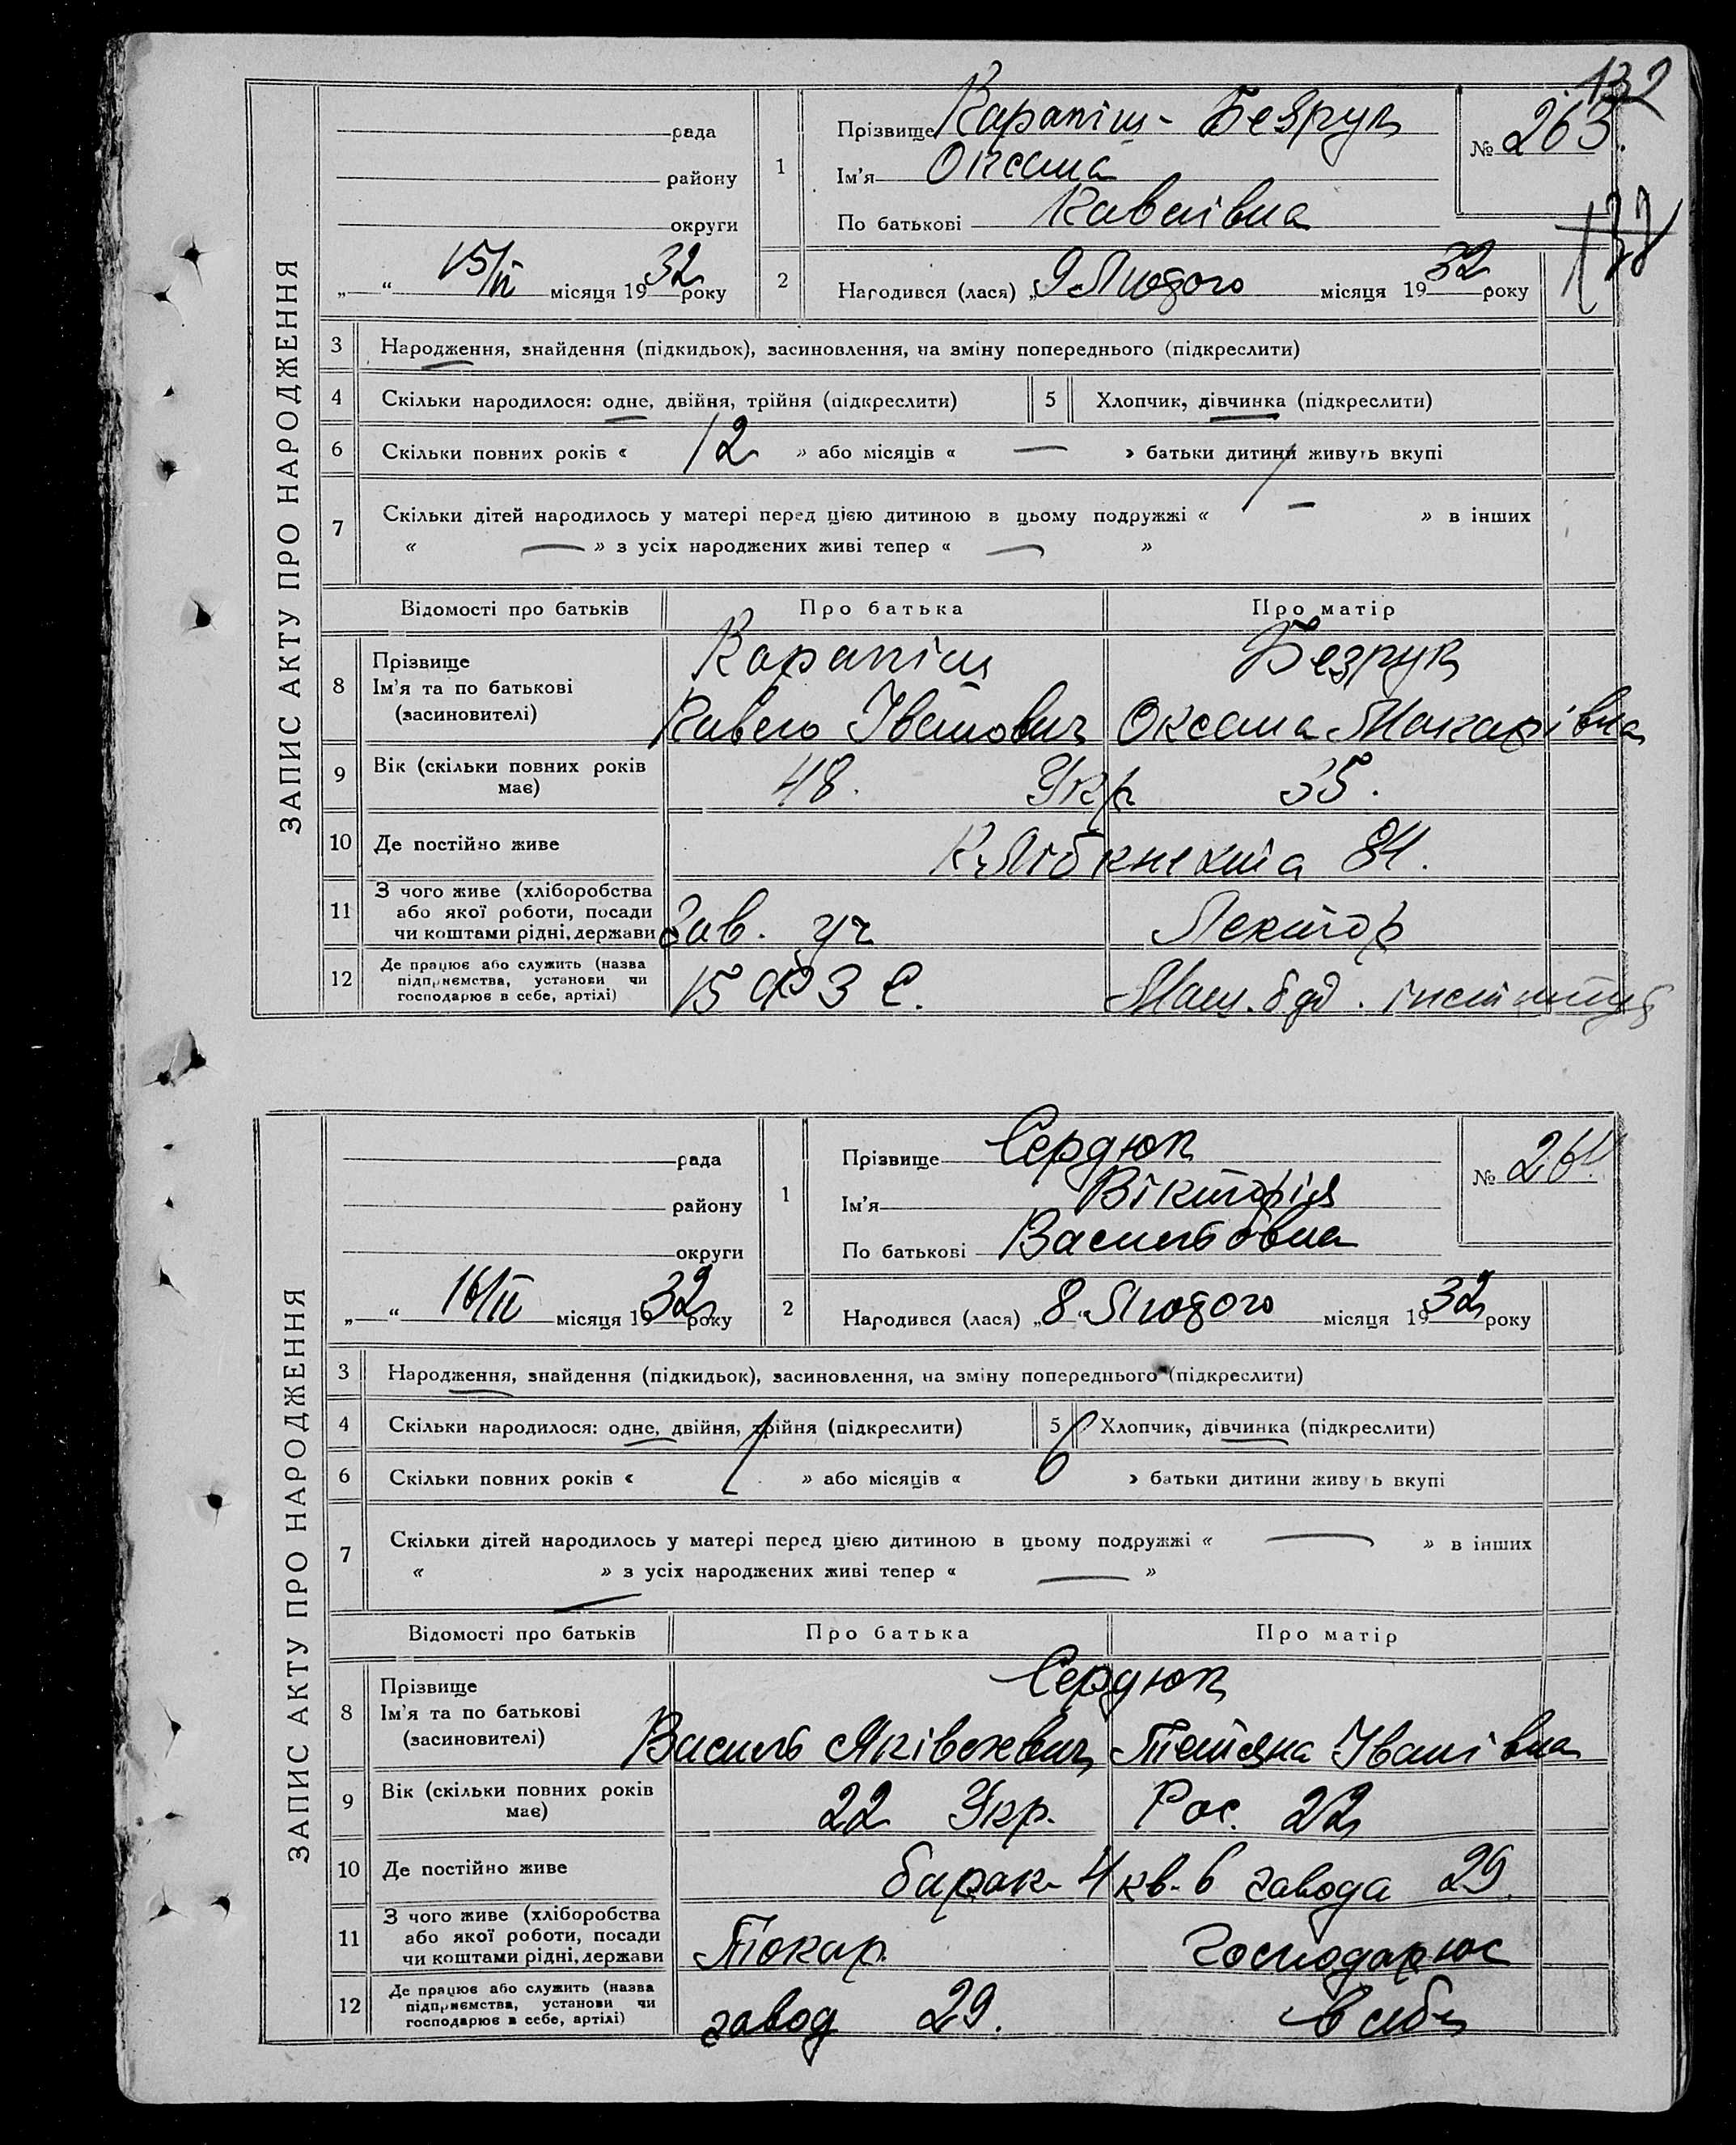 132
ЗАПИС АКТУ ПРО НАРОДЖЕННЯ
рада
району
округи
„ “ 15/II місяця 1932 року
1
Прізвище Карапіш-Безрук
Ім'я Оксана
По батькові
№ 263.
2
Народився (лася) „ 9 Лютого місяця 1932 року
3 Народження, знайдення (підкидьок), засиновлення, на зміну попереднього (підкреслити)
4 Скільки народилося: одне, двійня, трійня (підкреслити) 5 Хлопчик, дівчинка (підкреслити)
6 Скільки повних років « 12 » або місяців « — » батьки дитини живуть вкупі
7 Скільки дітей народилось у матері перед цією дитиною в цьому подружжі « — » в інших
« — » з усіх народжених живі тепер « — »
Відомості про батьків Про батька Про матір
8 Прізвище
Ім'я та по батькові
(засиновителі)
Карапіш Безрук
Іванович Оксана Макарівна
9 Вік (скільки повних років має) 48. Укр 35.
10 Де постійно живе К. Лібкнехта 84.
11 З чого живе (хліборобства
або якої роботи, посади
чи коштами рідні, держави
Зав. уч Лектор
12 Де працює або служить (назва
підприємства, установи чи
господарює в себе, артілі)
15 ФЗС. Маш. буд. інститут
ЗАПИС АКТУ ПРО НАРОДЖЕННЯ
рада
району
округи
„ “ 16/II місяця 1932 року
1
Прізвище Сердюк
Ім'я Вікторія
По батькові Васильовна
№ 264.
2
Народився (лася) „ 8 “ Лютого місяця 1932 року
3 Народження, знайдення (підкидьок), засиновлення, на зміну попереднього (підкреслити)
4 Скільки народилося: одне, двійня, трійня (підкреслити) 5 Хлопчик, дівчинка (підкреслити)
6 Скільки повних років « 1 » або місяців « 6 » батьки дитини живуть вкупі
7 Скільки дітей народилось у матері перед цією дитиною в цьому подружжі « — » в інших
« — » з усіх народжених живі тепер « — »
Відомості про батьків Про батька Про матір
8 Прізвище
Ім'я та по батькові
(засиновителі)
Сердюк
Василь Яківлевич Тетяна Іванівна
9 Вік (скільки повних років має) 22 Укр. Рос. 22
10 Де постійно живе барак 4 кв. 6 завода 29.
11 З чого живе (хліборобства
або якої роботи, посади
чи коштами рідні, держави
Токар Господарює
12 Де працює або служить (назва
підприємства, установи чи
господарює в себе, артілі)
завод 29. в себе